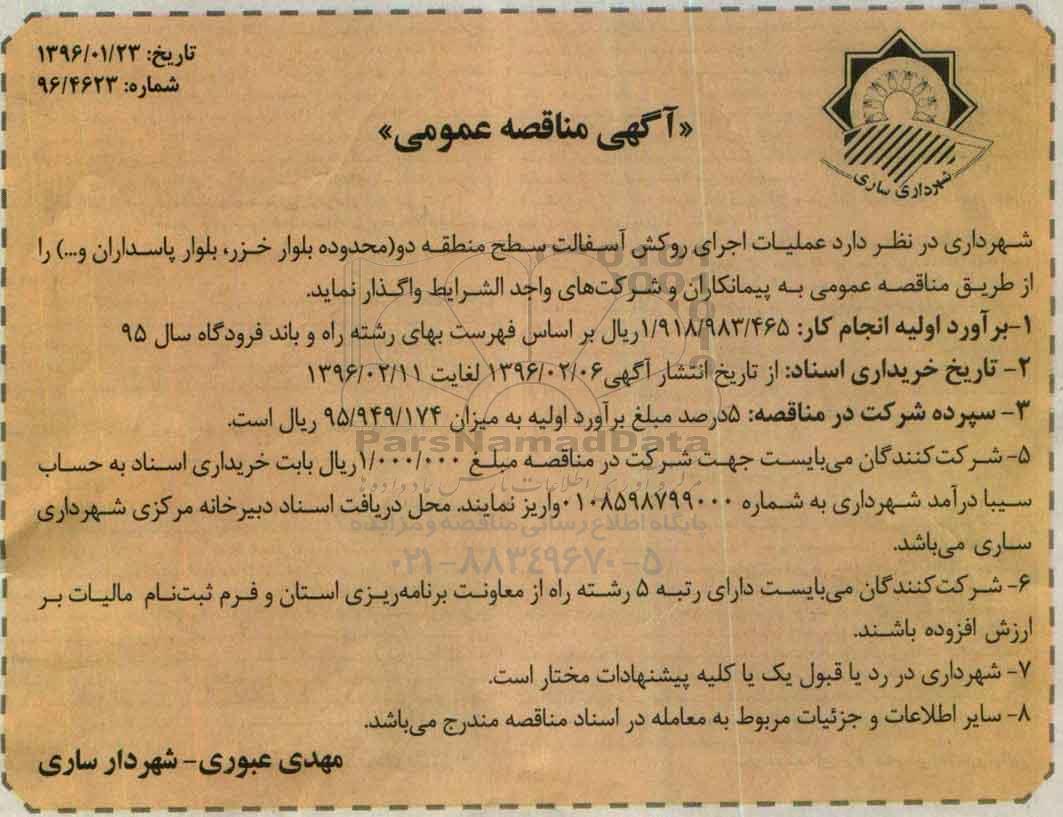 تاریخ: ۱۳۹۶/۰۱/۲۳
شماره: ۹۶/۴۶۲۳
شهرداری ساری
«آگهی مناقصه عمومی»
شهرداری در نظر دارد عملیات اجرای روکش آسفالت سطح منطقه دو(محدوده بلوار خزر، بلوار پاسداران و...) را
از طریق مناقصه عمومی به پیمانکاران و شرکت‌های واجد الشرایط واگذار نماید.
۱-برآورد اولیه انجام کار: ۱/۹۱۸/۹۸۳/۴۶۵ریال بر اساس فهرست بهای رشته راه و باند فرودگاه سال ۹۵
۲- تاریخ خریداری اسناد: از تاریخ انتشار آگهی۱۳۹۶/۰۲/۰۶ لغایت ۱۳۹۶/۰۲/۱۱
۳- سپرده شرکت در مناقصه: ۵درصد مبلغ برآورد اولیه به میزان ۹۵/۹۴۹/۱۷۴ ریال است.
ParsNamadData
۵- شرکت‌کنندگان می‌بایست جهت شرکت در مناقصه مبلغ ۱/۰۰۰/۰۰۰ریال بابت خریداری اسناد به حساب
سیبا درآمد شهرداری به شماره ۰۱۰۸۵۹۸۷۹۹۰۰۰واریز نمایند. محل دریافت اسناد دبیرخانه مرکزی شهرداری
پایگاه اطلاع رسانی مناقصه و مزایده
ساری می‌باشد.
۰۲۱-۸۸۳۴۹۶۷۰-۵
۶- شرکت‌کنندگان می‌بایست دارای رتبه ۵ رشته راه از معاونت برنامه‌ریزی استان و فرم ثبت‌نام مالیات بر
ارزش افزوده باشند.
۷- شهرداری در رد یا قبول یک یا کلیه پیشنهادات مختار است.
۸- سایر اطلاعات و جزئیات مربوط به معامله در اسناد مناقصه مندرج می‌باشد.
مهدی عبوری- شهردار ساری